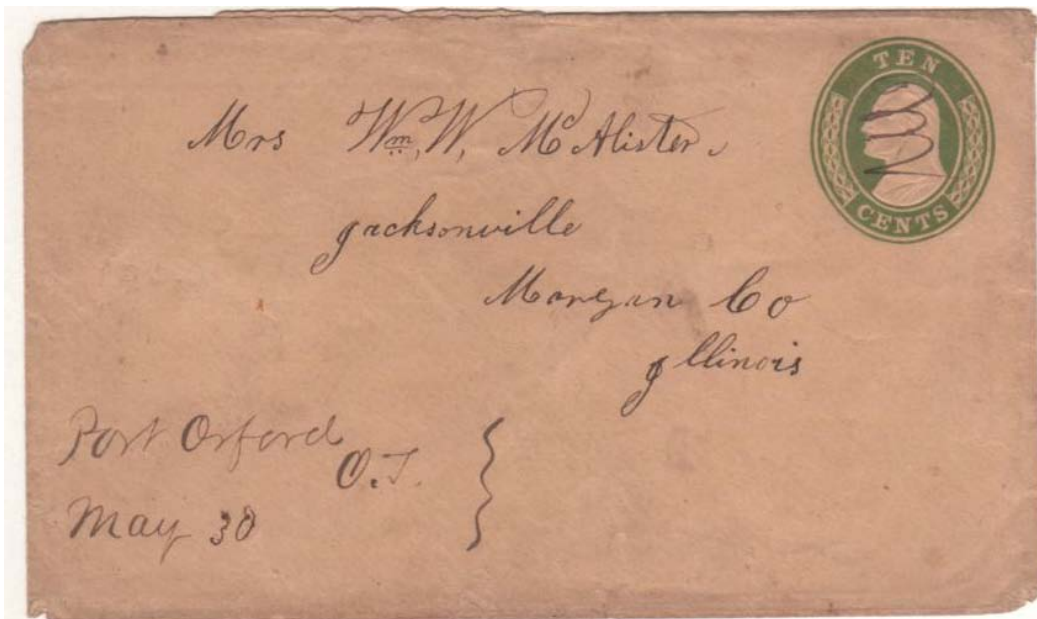 TEN
CENTS
Mrs Wm, W, McAlister
Jacksonville
Morgan Co
Illinois
Port Orford
O.T.
May 30